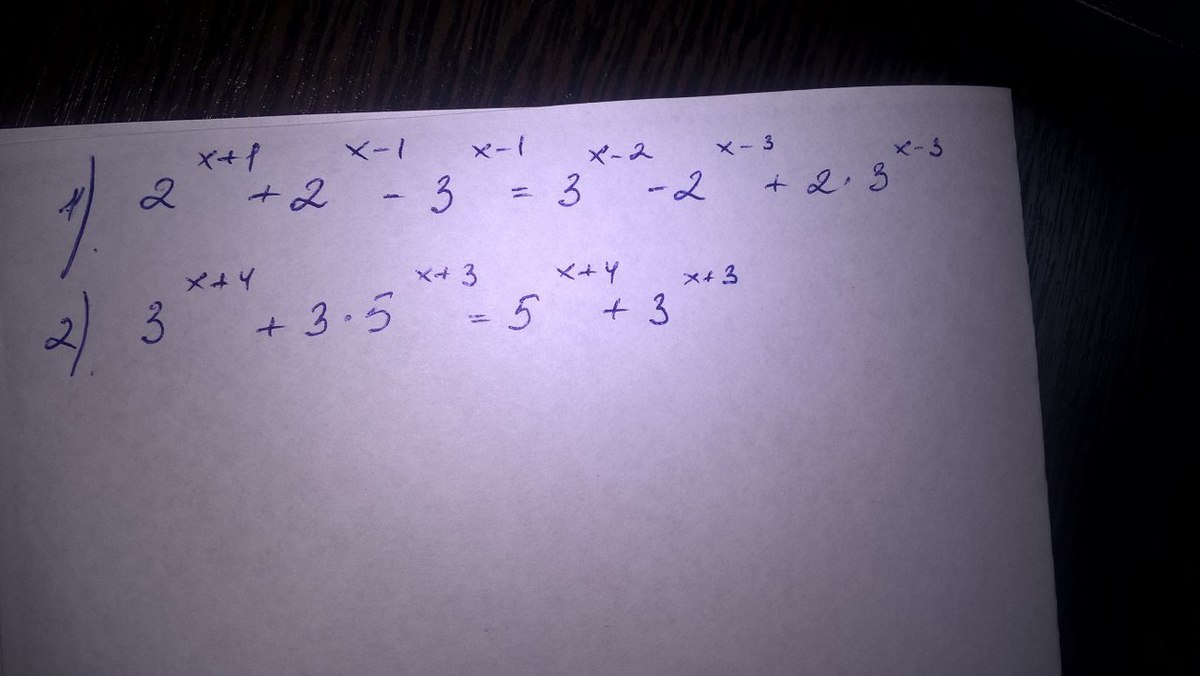 1) 2^{x+1} + 2^{x-1} - 3^{x-1} = 3^{x-2} - 2^{x-3} + 2 · 3^{x-3}
2) 3^{x+4} + 3 · 5^{x+3} = 5^{x+4} + 3^{x+3}